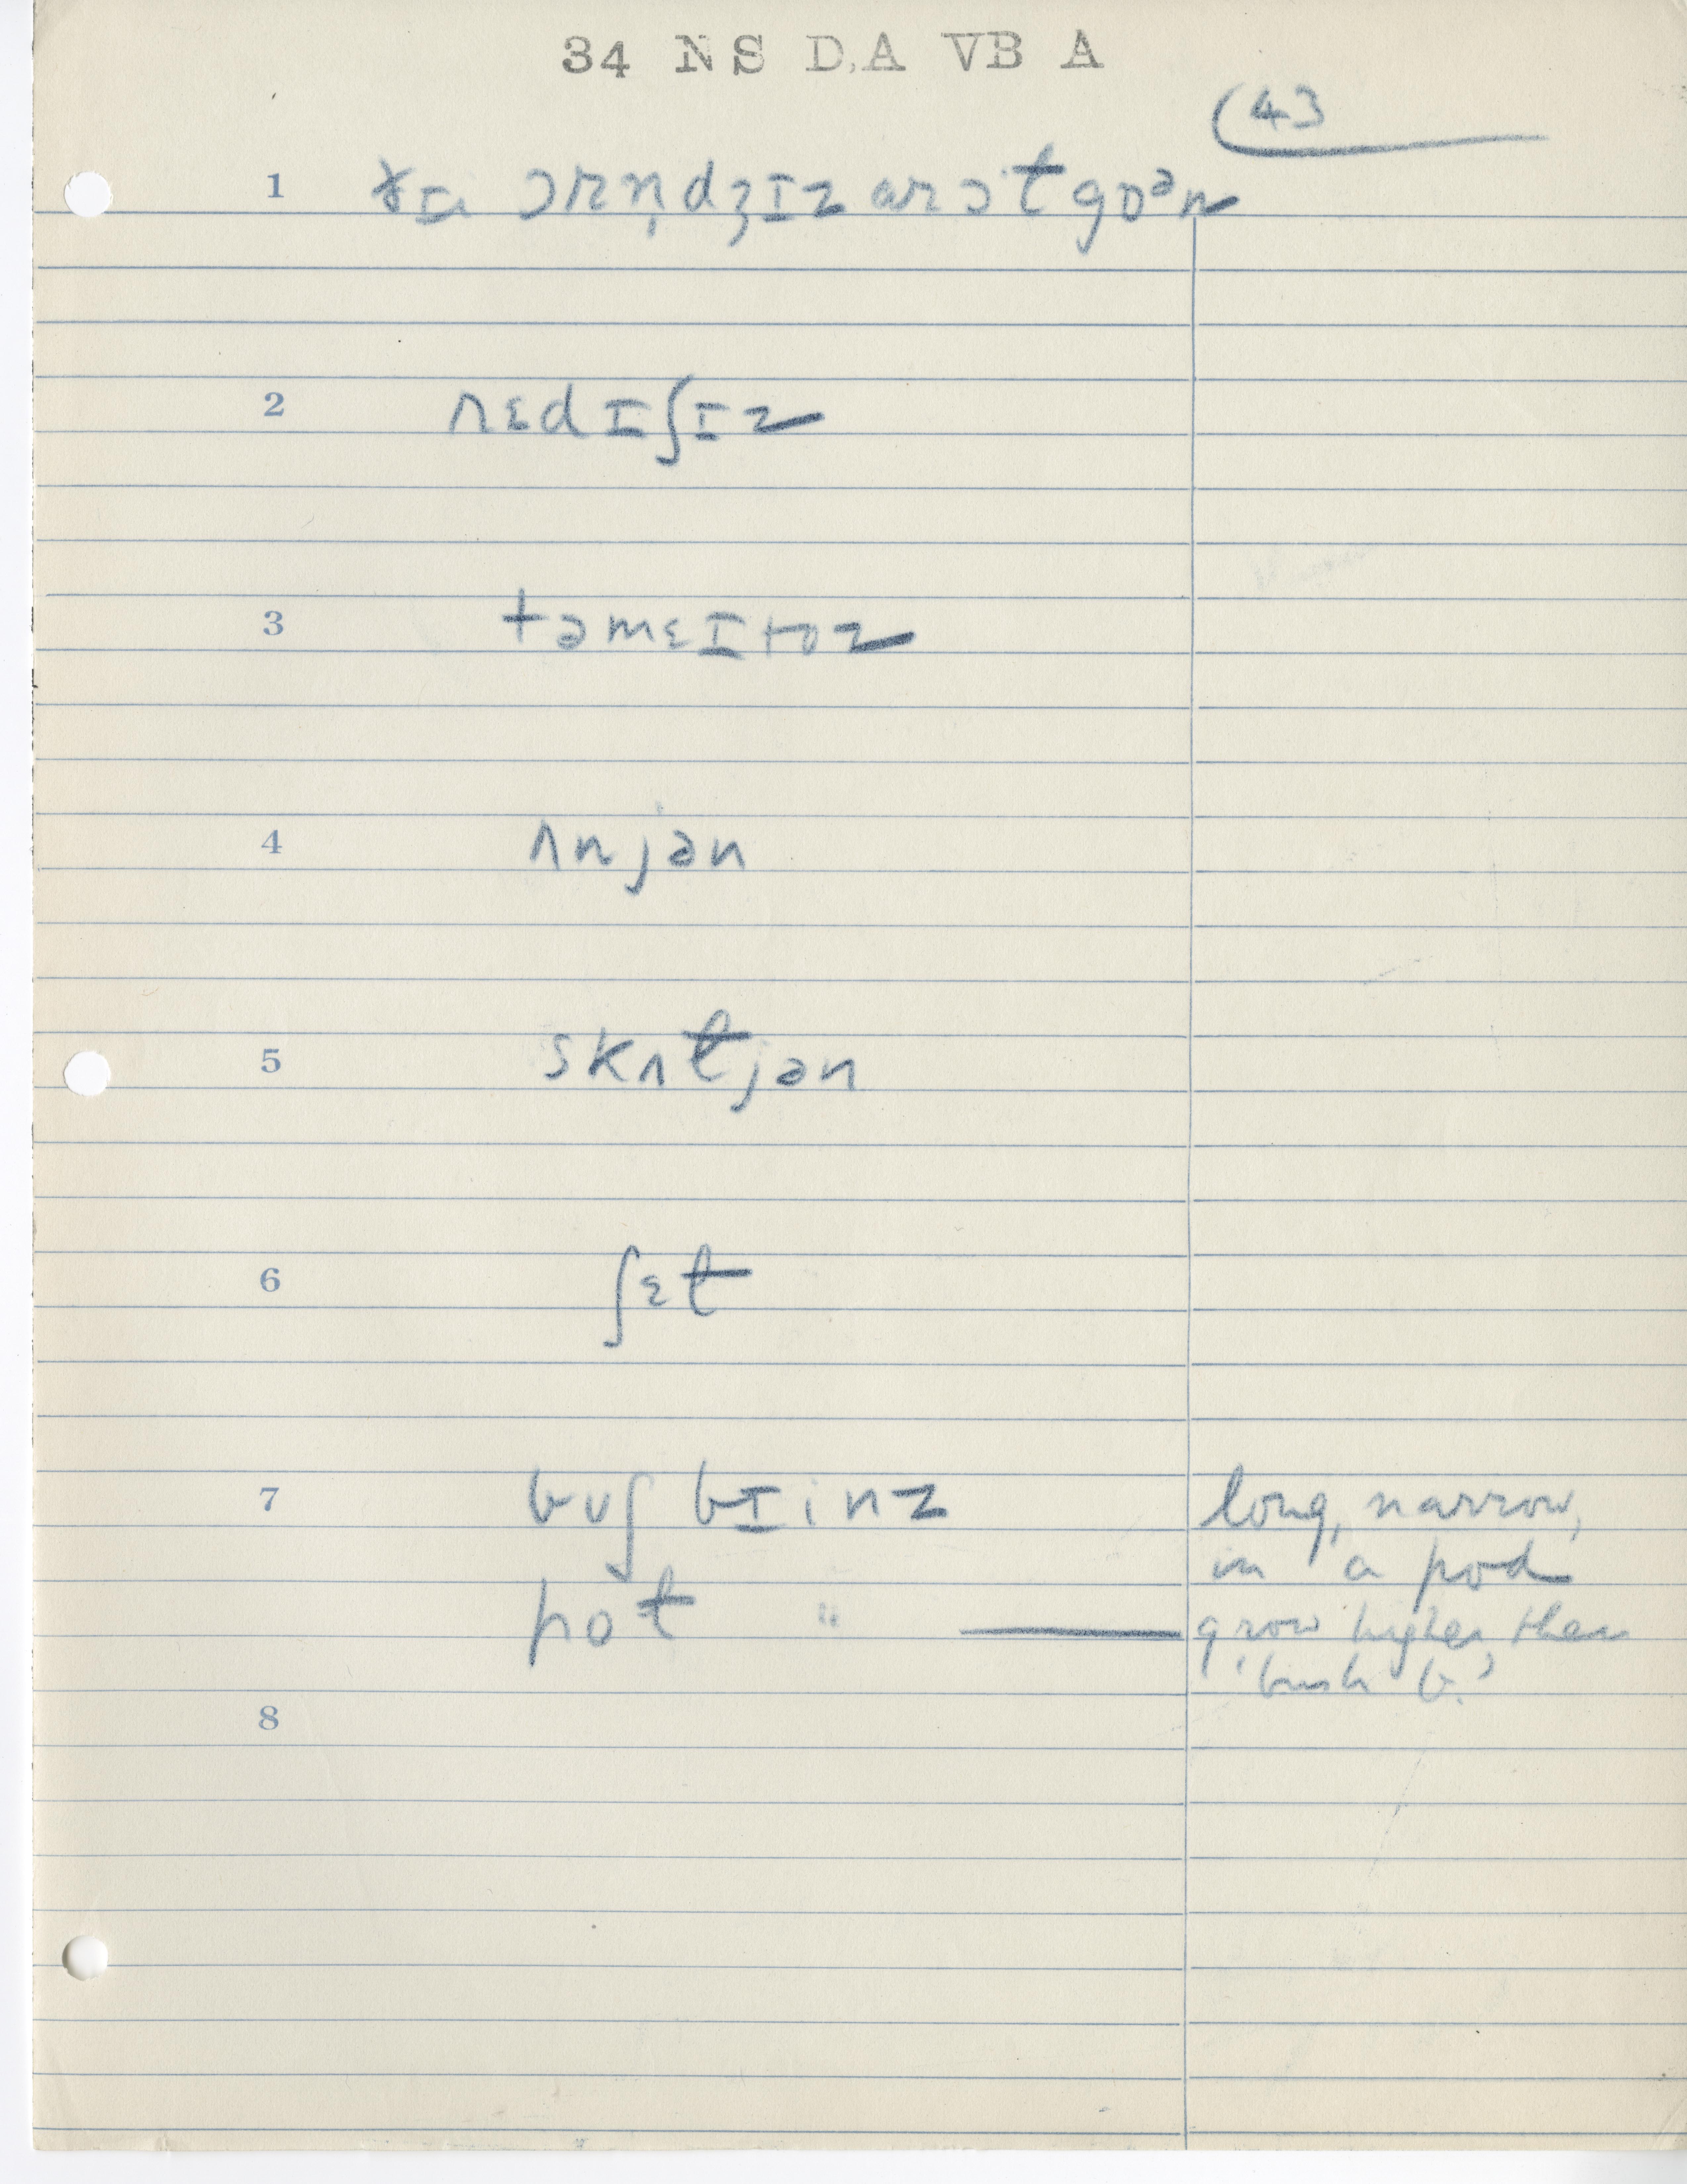 34 NS D,A VB A
(43
1 ɤɪi ɔrn̩dʒɪz ar ɔˑt gɒᵊn
2 rɛdɪʃɪz
3 təmɛɪtoz
4 ʌnjən
5 skʌtjən
6 ʃɛt
7 bʊʃ bɪinz long, narrow,
in a pod
pot " — grow higher than
'bush b.'
8